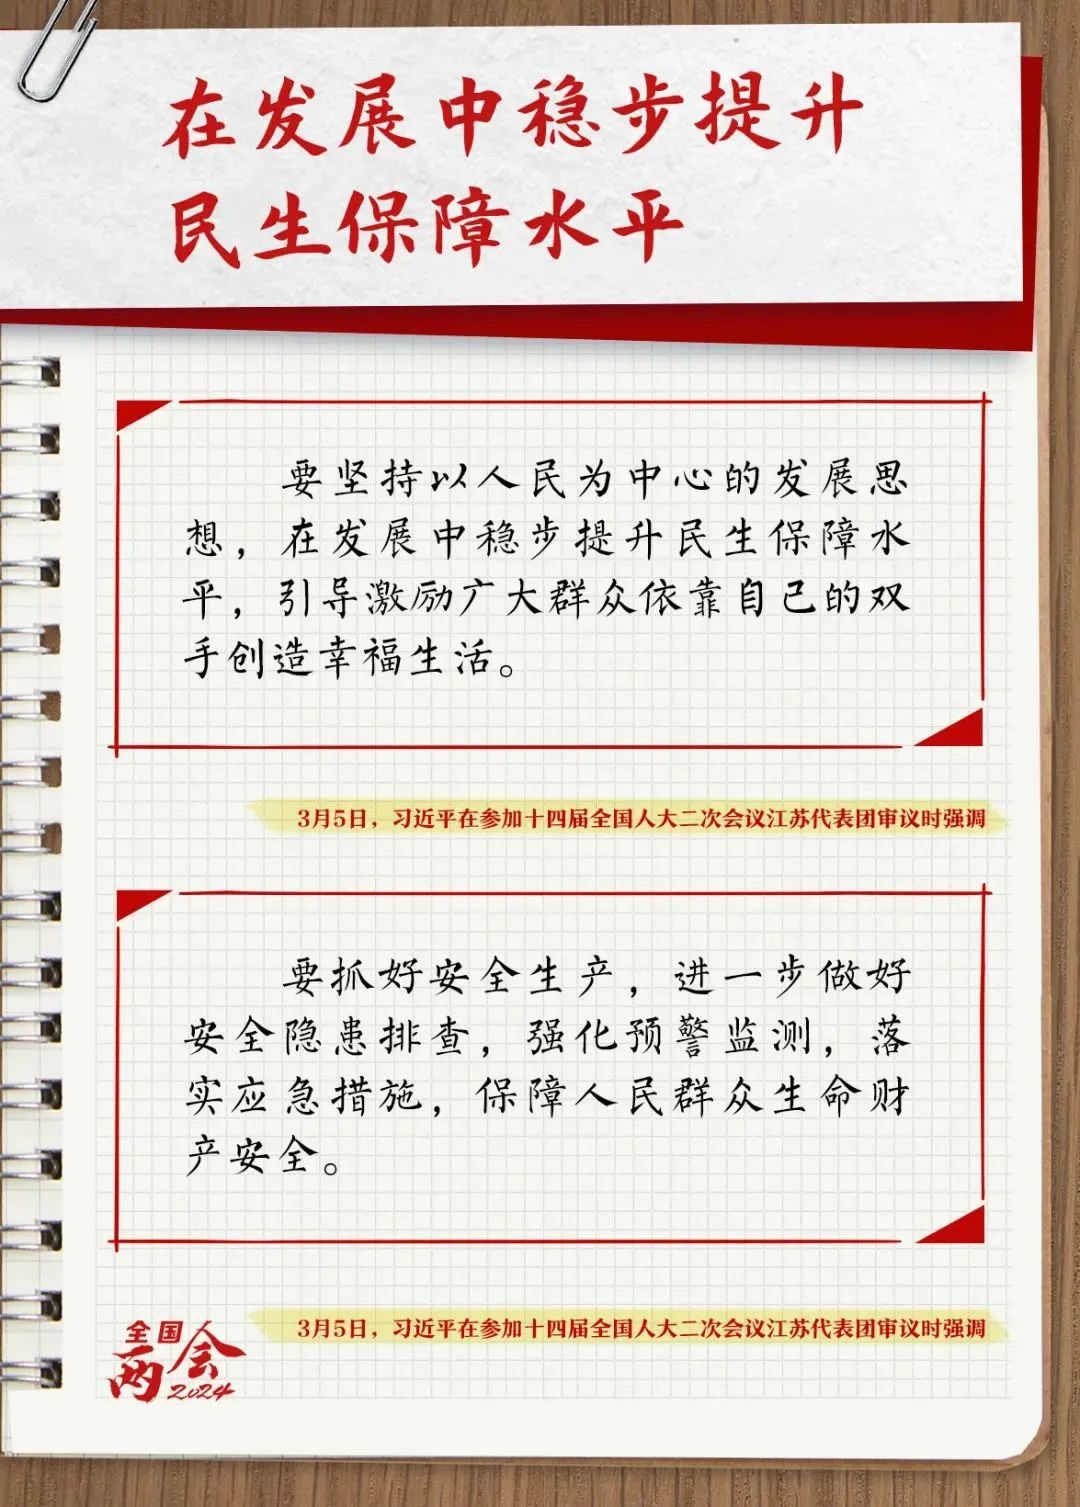 在发展中稳步提升
民生保障水平
要坚持以人民为中心的发展思
想，在发展中稳步提升民生保障水
平，引导激励广大群众依靠自己的双
手创造幸福生活。
3月5日，习近平在参加十四届全国人大二次会议江苏代表团审议时强调
要抓好安全生产，进一步做好
安全隐患排查，强化预警监测，落
实应急措施，保障人民群众生命财
产安全。
3月5日，习近平在参加十四届全国人大二次会议江苏代表团审议时强调
全国
两会
2024